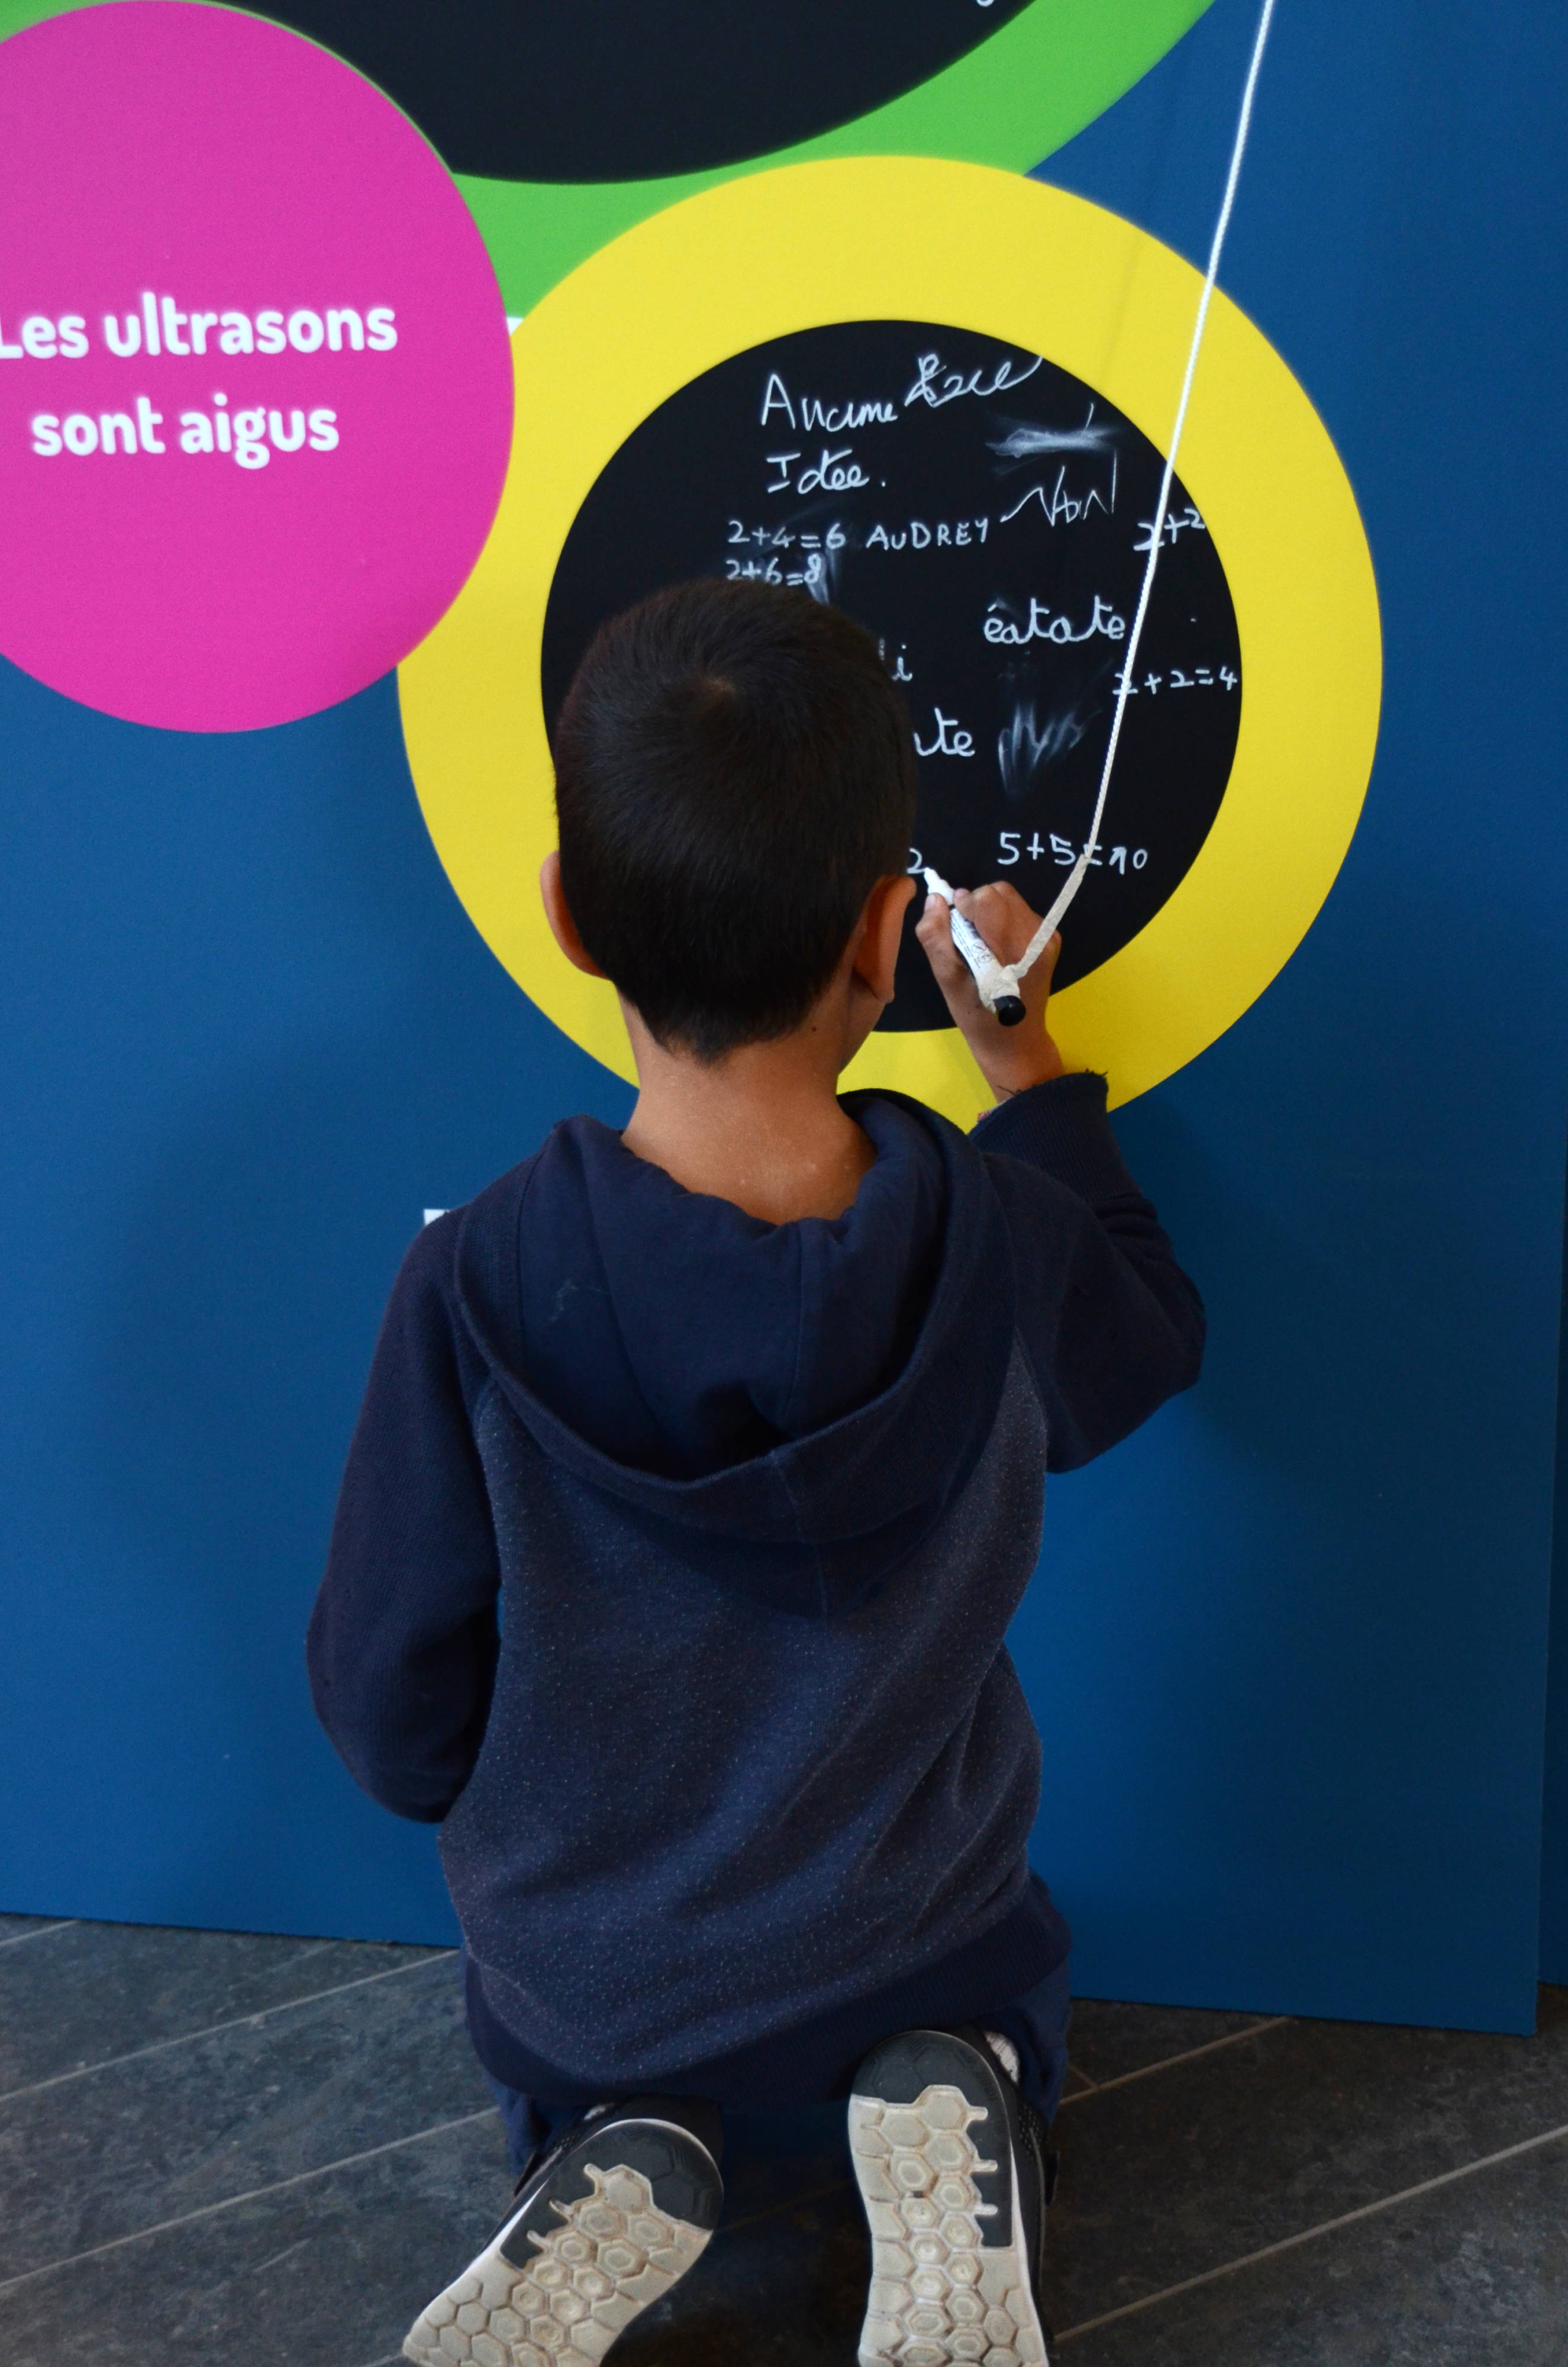 Les ultrasons
sont aigus
Aucune
Idee.
2+4=6 AUDREY NON 2+2
2+6=8
éatate
2+2=4
5+5=10
2